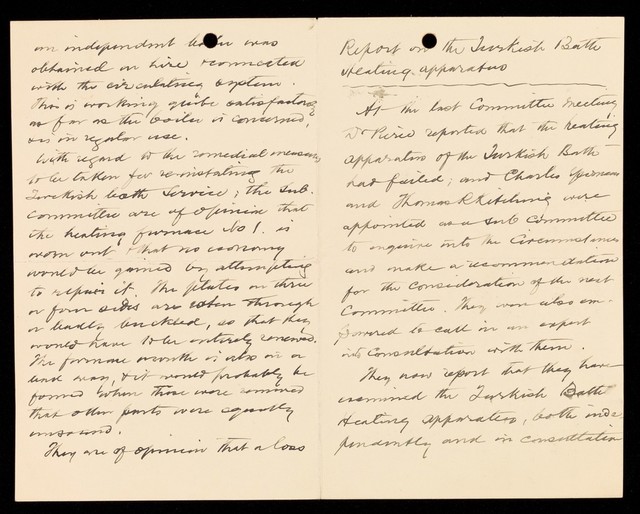 Report on the Turkish Bath
Heating apparatus
At the last Committee meeting
Dr Pierce reported that the heating
apparatus of the Turkish Bath
had failed; and Charles
and Thomas Kitching were
appointed as a sub Committee
to enquire into the Circumstances
and make a recommendation
for the Consideration of the next
Committee. They were also em-
powered to call in an expert
into Consultation with them.
They now report that they have
examined the Turkish Bath
Heating apparatus, both inde
pendently and in consultation
an independent boiler was
obtained on hire & connected
with the circulating system.
This is working quite satisfactorily
as far as the boiler is concerned,
& is in regular use.
With regard to the remedial measures
to be taken for reinstating the
Turkish bath Service; the sub.
committee are of opinion that
the heating furnace No 1. is
worn out & that no economy
would be gained by attempting
to repair it. The plates on three
or four sides are eaten through
or badly buckled, so that they
would have to be entirely renewed.
The furnace mouth is also in a
bad way, & it would probably be
found when those were removed
that other parts were equally
unsound.
They are of opinion that a loss